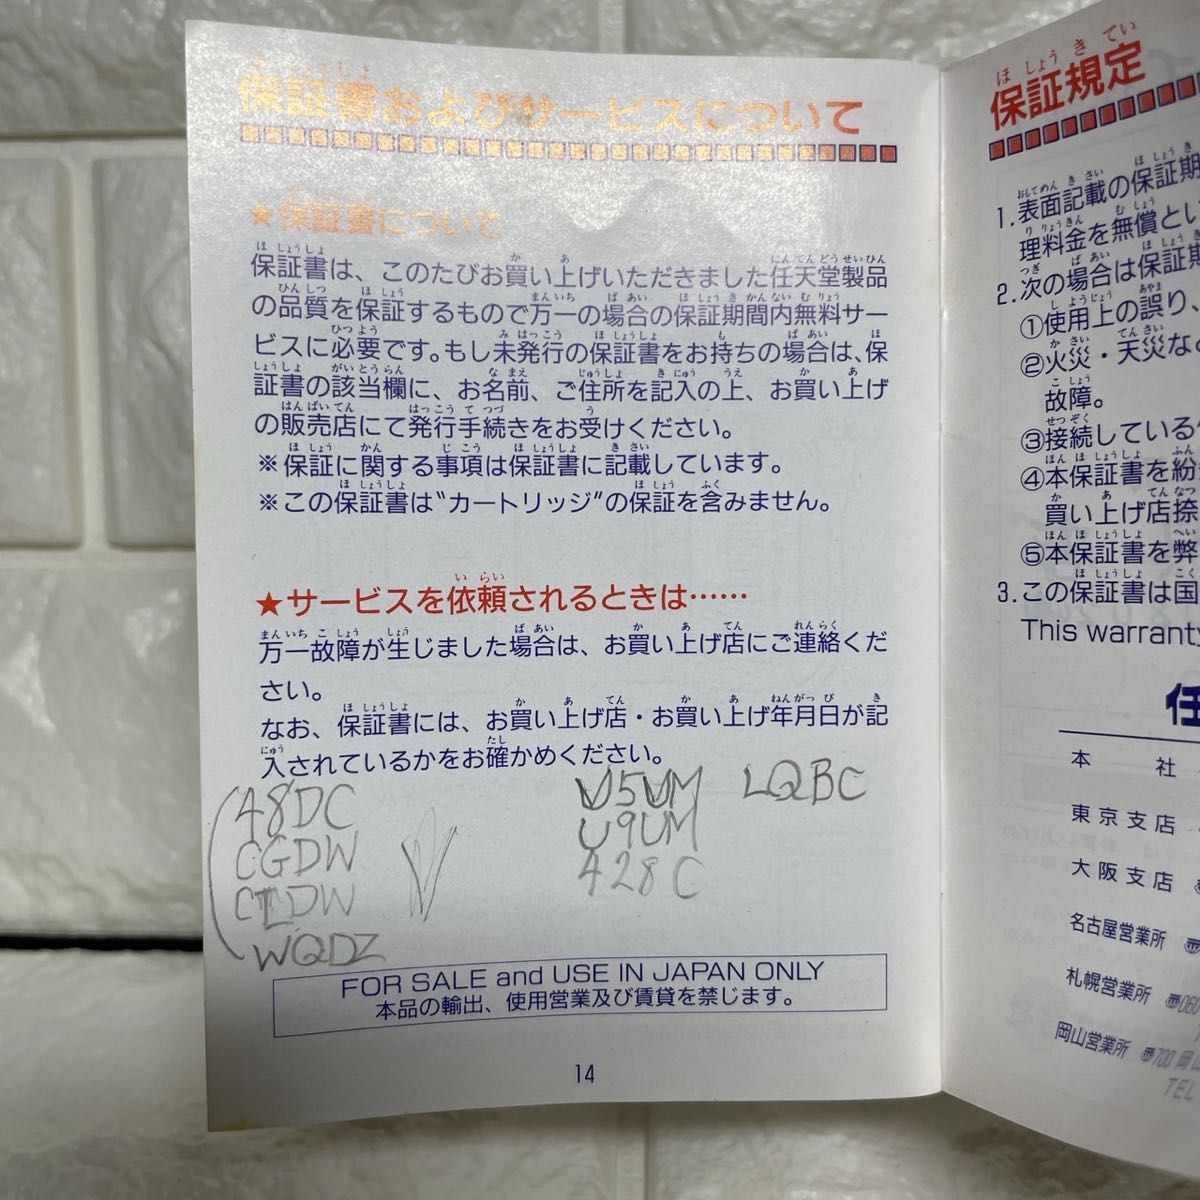 保証書およびサービスについて
★保証書について
保証書は、このたびお買い上げいただきました任天堂製品
の品質を保証するもので万一の場合の保証期間内無料サー
ビスに必要です。もし未発行の保証書をお持ちの場合は、保
証書の該当欄に、お名前、ご住所を記入の上、お買い上げ
の販売店にて発行手続きをお受けください。
※保証に関する事項は保証書に記載しています。
※この保証書は“カートリッジ”の保証を含みません。
★サービスを依頼されるときは……
万一故障が生じました場合は、お買い上げ店にご連絡くだ
さい。
なお、保証書には、お買い上げ店・お買い上げ年月日が記
入されているかをお確かめください。
48DC
CGDW
DW
WQDZ
U5UM LQBC
U9UM
428C
FOR SALE and USE IN JAPAN ONLY
本品の輸出、使用営業及び賃貸を禁じます。
14
保証規定
1.表面記載の保証期
理料金を無償とい
2.次の場合は保証期
①使用上の誤り、
②火災・天災な
故障。
③接続している
④本保証書を紛
買い上げ店捺
⑤本保証書を弊
3.この保証書は国
This warranty
任
本社
東京支店
大阪支店
名古屋営業所
札幌営業所 〒060
岡山営業所 〒700 岡山
TEL